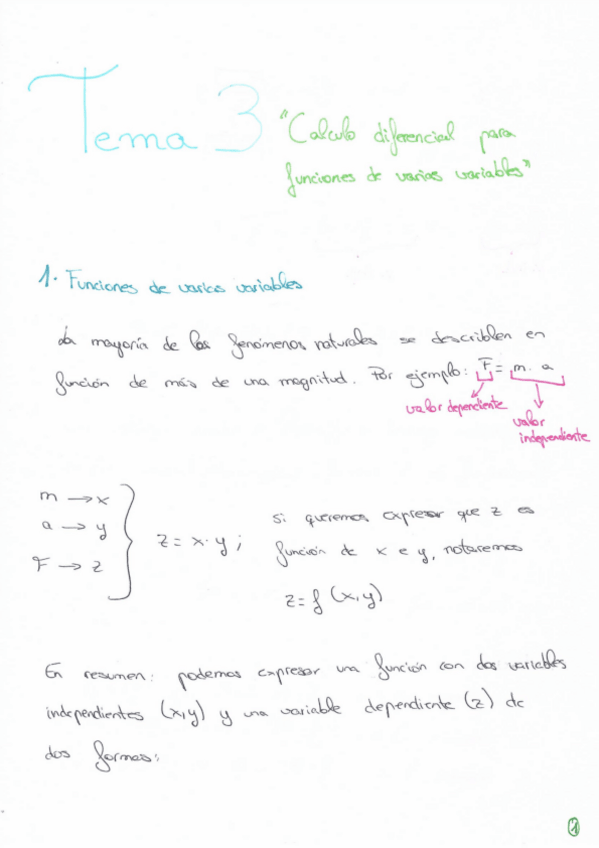 Tema 3
"Calculo diferencial para
funciones de varias variables"
1. Funciones de varias variables
La mayoría de los fenómenos naturales se describlen en
función de más de una magnitud. Por ejemplo: F = m. a
valor dependiente
valor
independiente
m → x
a → y
F → z
z = x·y ;
si queremos expresar que z es
función de x e y, notaremos
z = f (x,y)
En resumen: podemos expresar una función con dos variables
independientes (x,y) y una variable dependiente (z) de
dos formas:
1